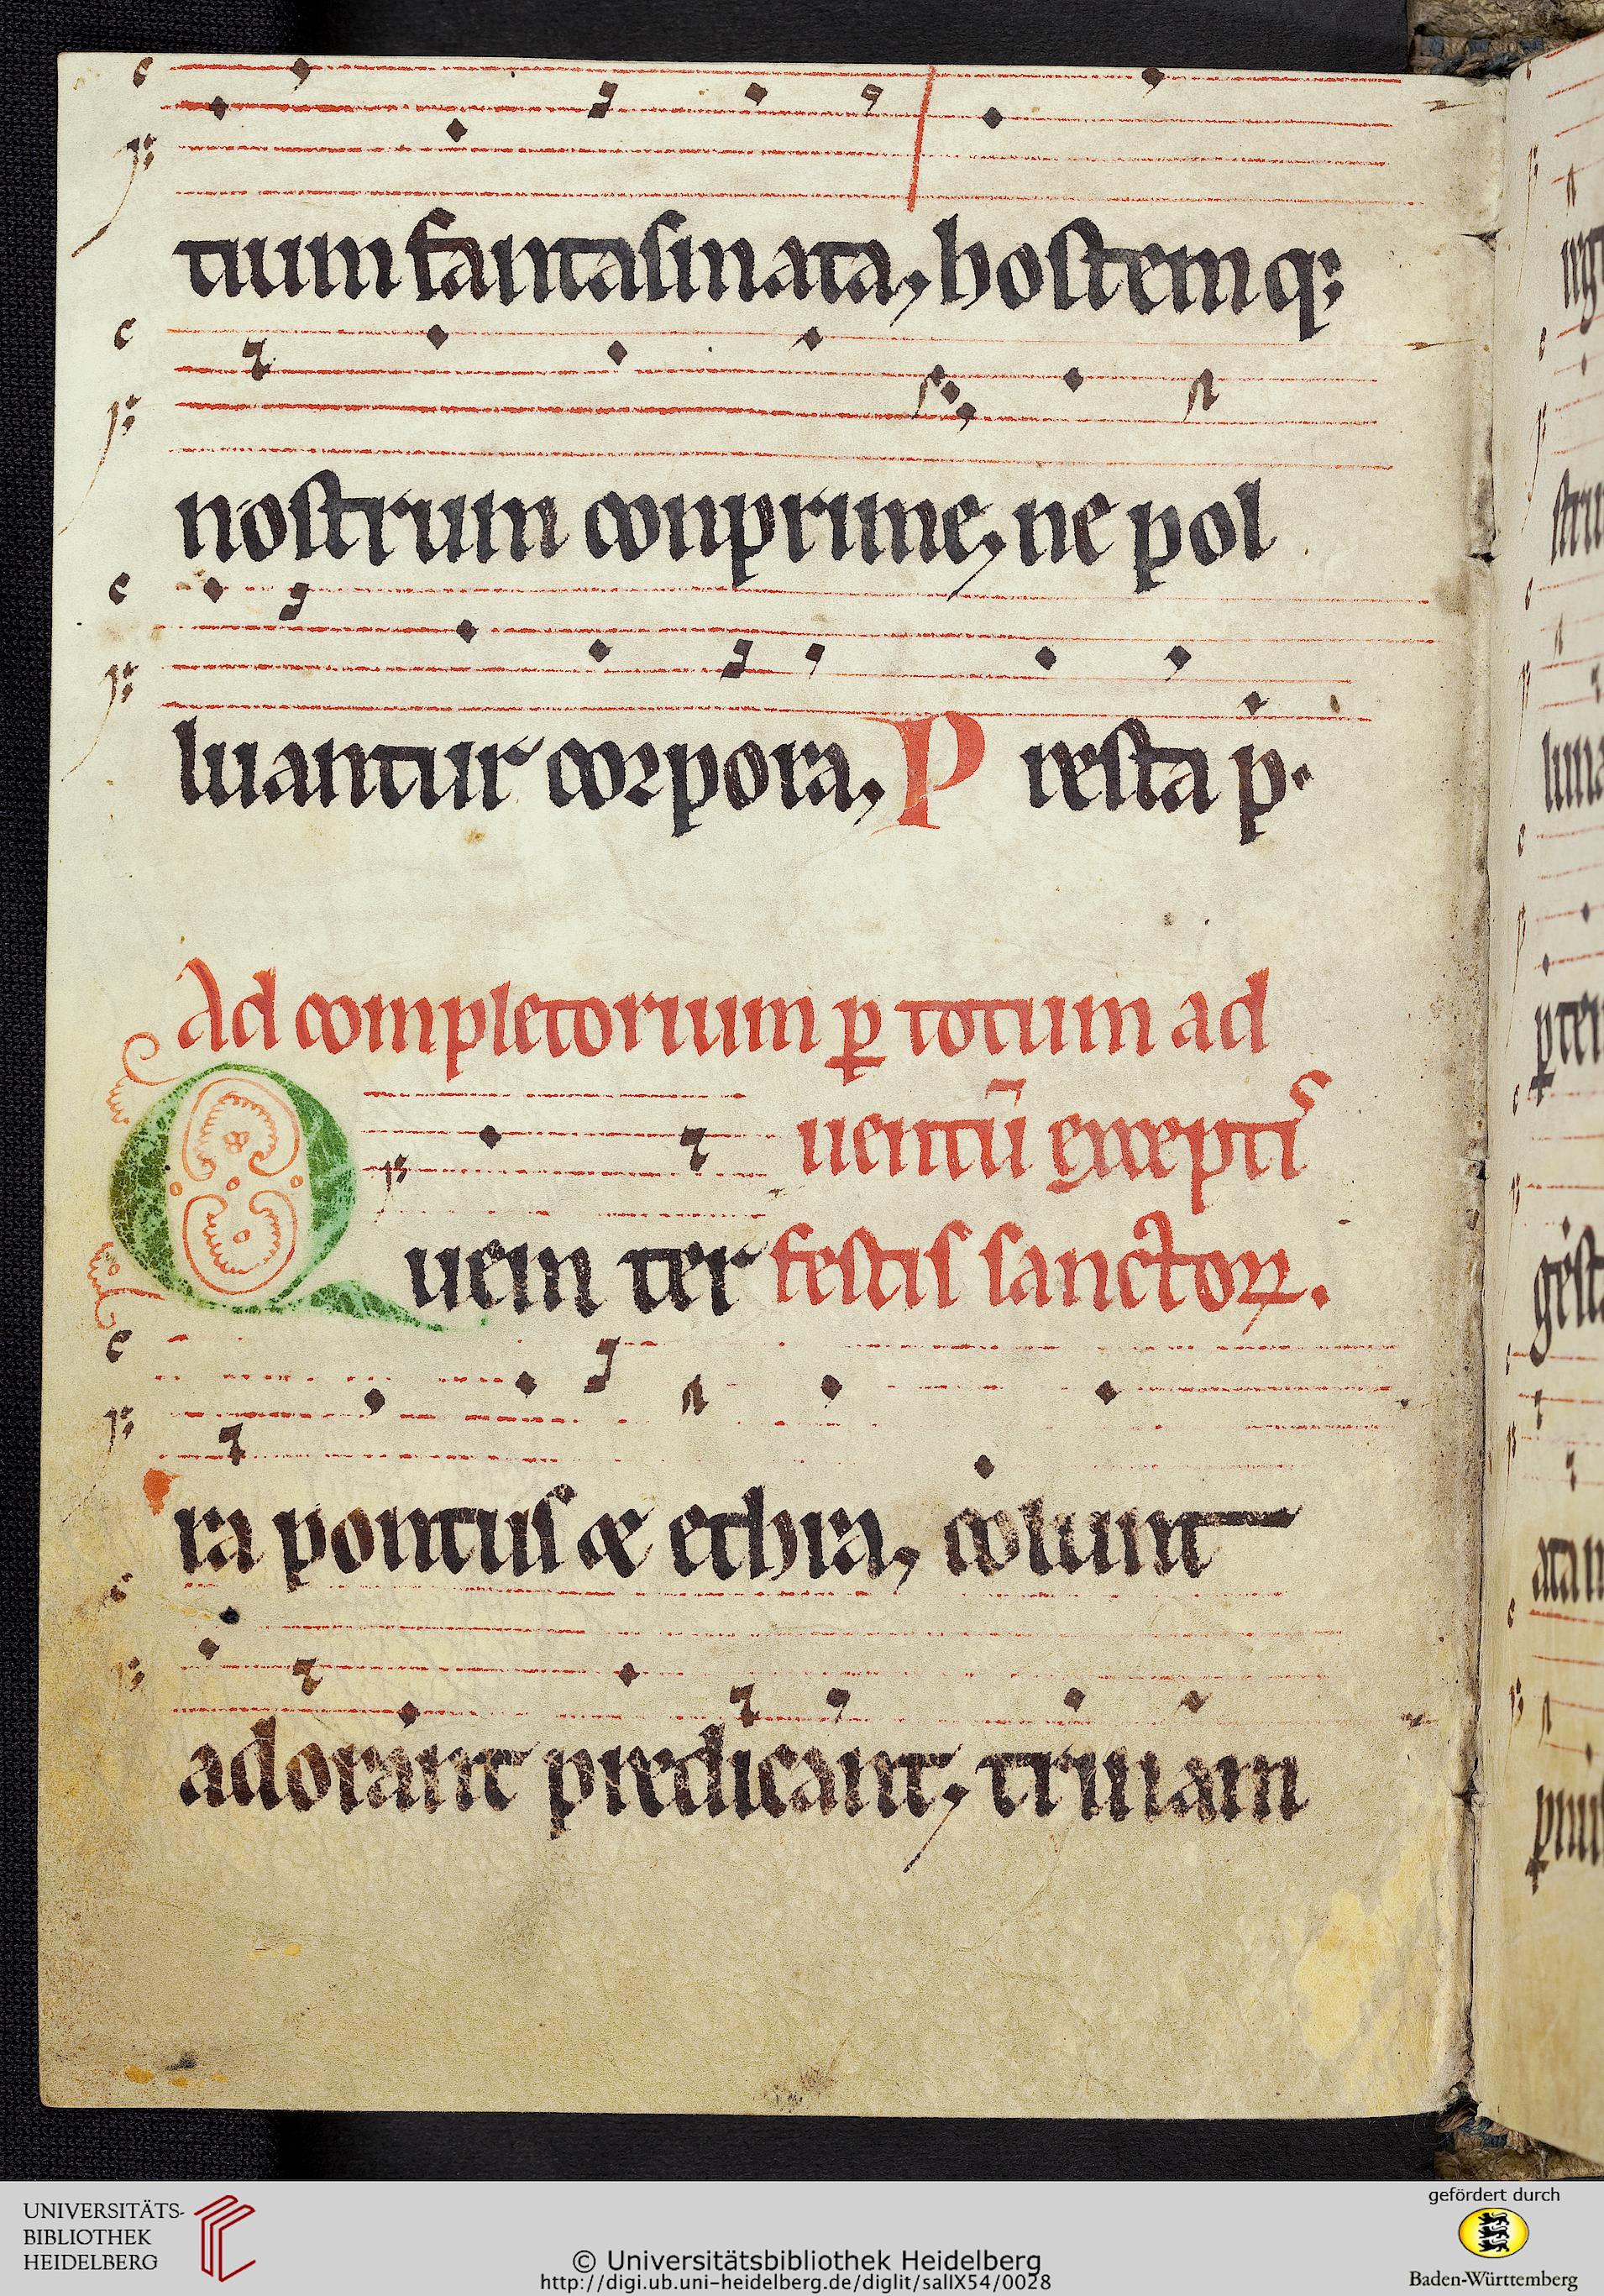 tium fantasmata, hostemq;
nostrum conprime, ne pol
luantur corpora, P resta p̄.
Ad completorium ꝑ totum ad
uentū exceptis
Quem ter festis sanctoꝝ.
ra pontus & ethra, colunt
adorant predicant, trinam
UNIVERSITÄTS-
BIBLIOTHEK
HEIDELBERG
© Universitätsbibliothek Heidelberg
http://digi.ub.uni-heidelberg.de/diglit/salIX54/0028
gefördert durch
Baden-Württemberg